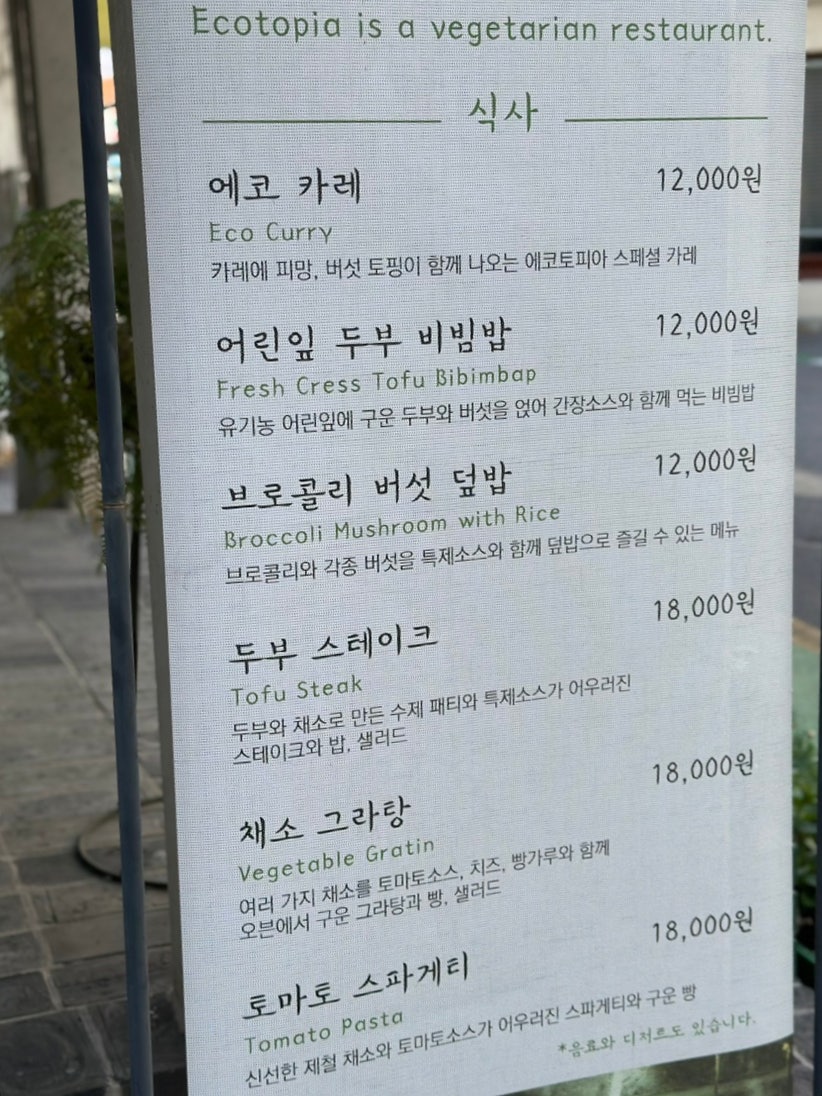 Ecotopia is a vegetarian restaurant.
식사
에코 카레 12,000원
Eco Curry
카레에 피망, 버섯 토핑이 함께 나오는 에코토피아 스페셜 카레
어린잎 두부 비빔밥 12,000원
Fresh Cress Tofu Bibimbap
유기농 어린잎에 구운 두부와 버섯을 얹어 간장소스와 함께 먹는 비빔밥
브로콜리 버섯 덮밥 12,000원
Broccoli Mushroom with Rice
브로콜리와 각종 버섯을 특제소스와 함께 덮밥으로 즐길 수 있는 메뉴
두부 스테이크 18,000원
Tofu Steak
두부와 채소로 만든 수제 패티와 특제소스가 어우러진
스테이크와 밥, 샐러드
채소 그라탕 18,000원
Vegetable Gratin
여러 가지 채소를 토마토소스, 치즈, 빵가루와 함께
오븐에서 구운 그라탕과 빵, 샐러드
토마토 스파게티 18,000원
Tomato Pasta
신선한 제철 채소와 토마토소스가 어우러진 스파게티와 구운 빵
*음료와 디저트도 있습니다.